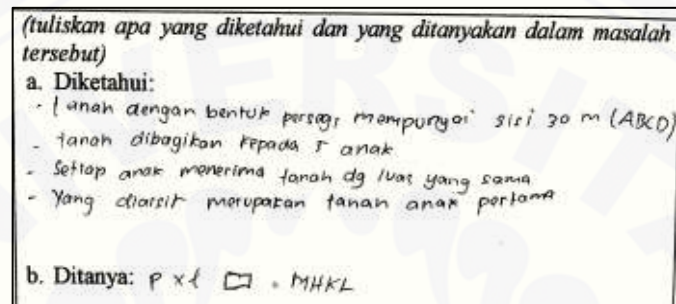 (tuliskan apa yang diketahui dan yang ditanyakan dalam masalah
tersebut)
a. Diketahui:
- tanah dengan bentuk persegi mempunyai sisi 30 m (ABCD)
- tanah dibagikan kepada 5 anak
- Setiap anak menerima tanah dg luas yang sama
- Yang diarsir merupakan tanah anak pertama
b. Ditanya: p x l ▭ . MHKL